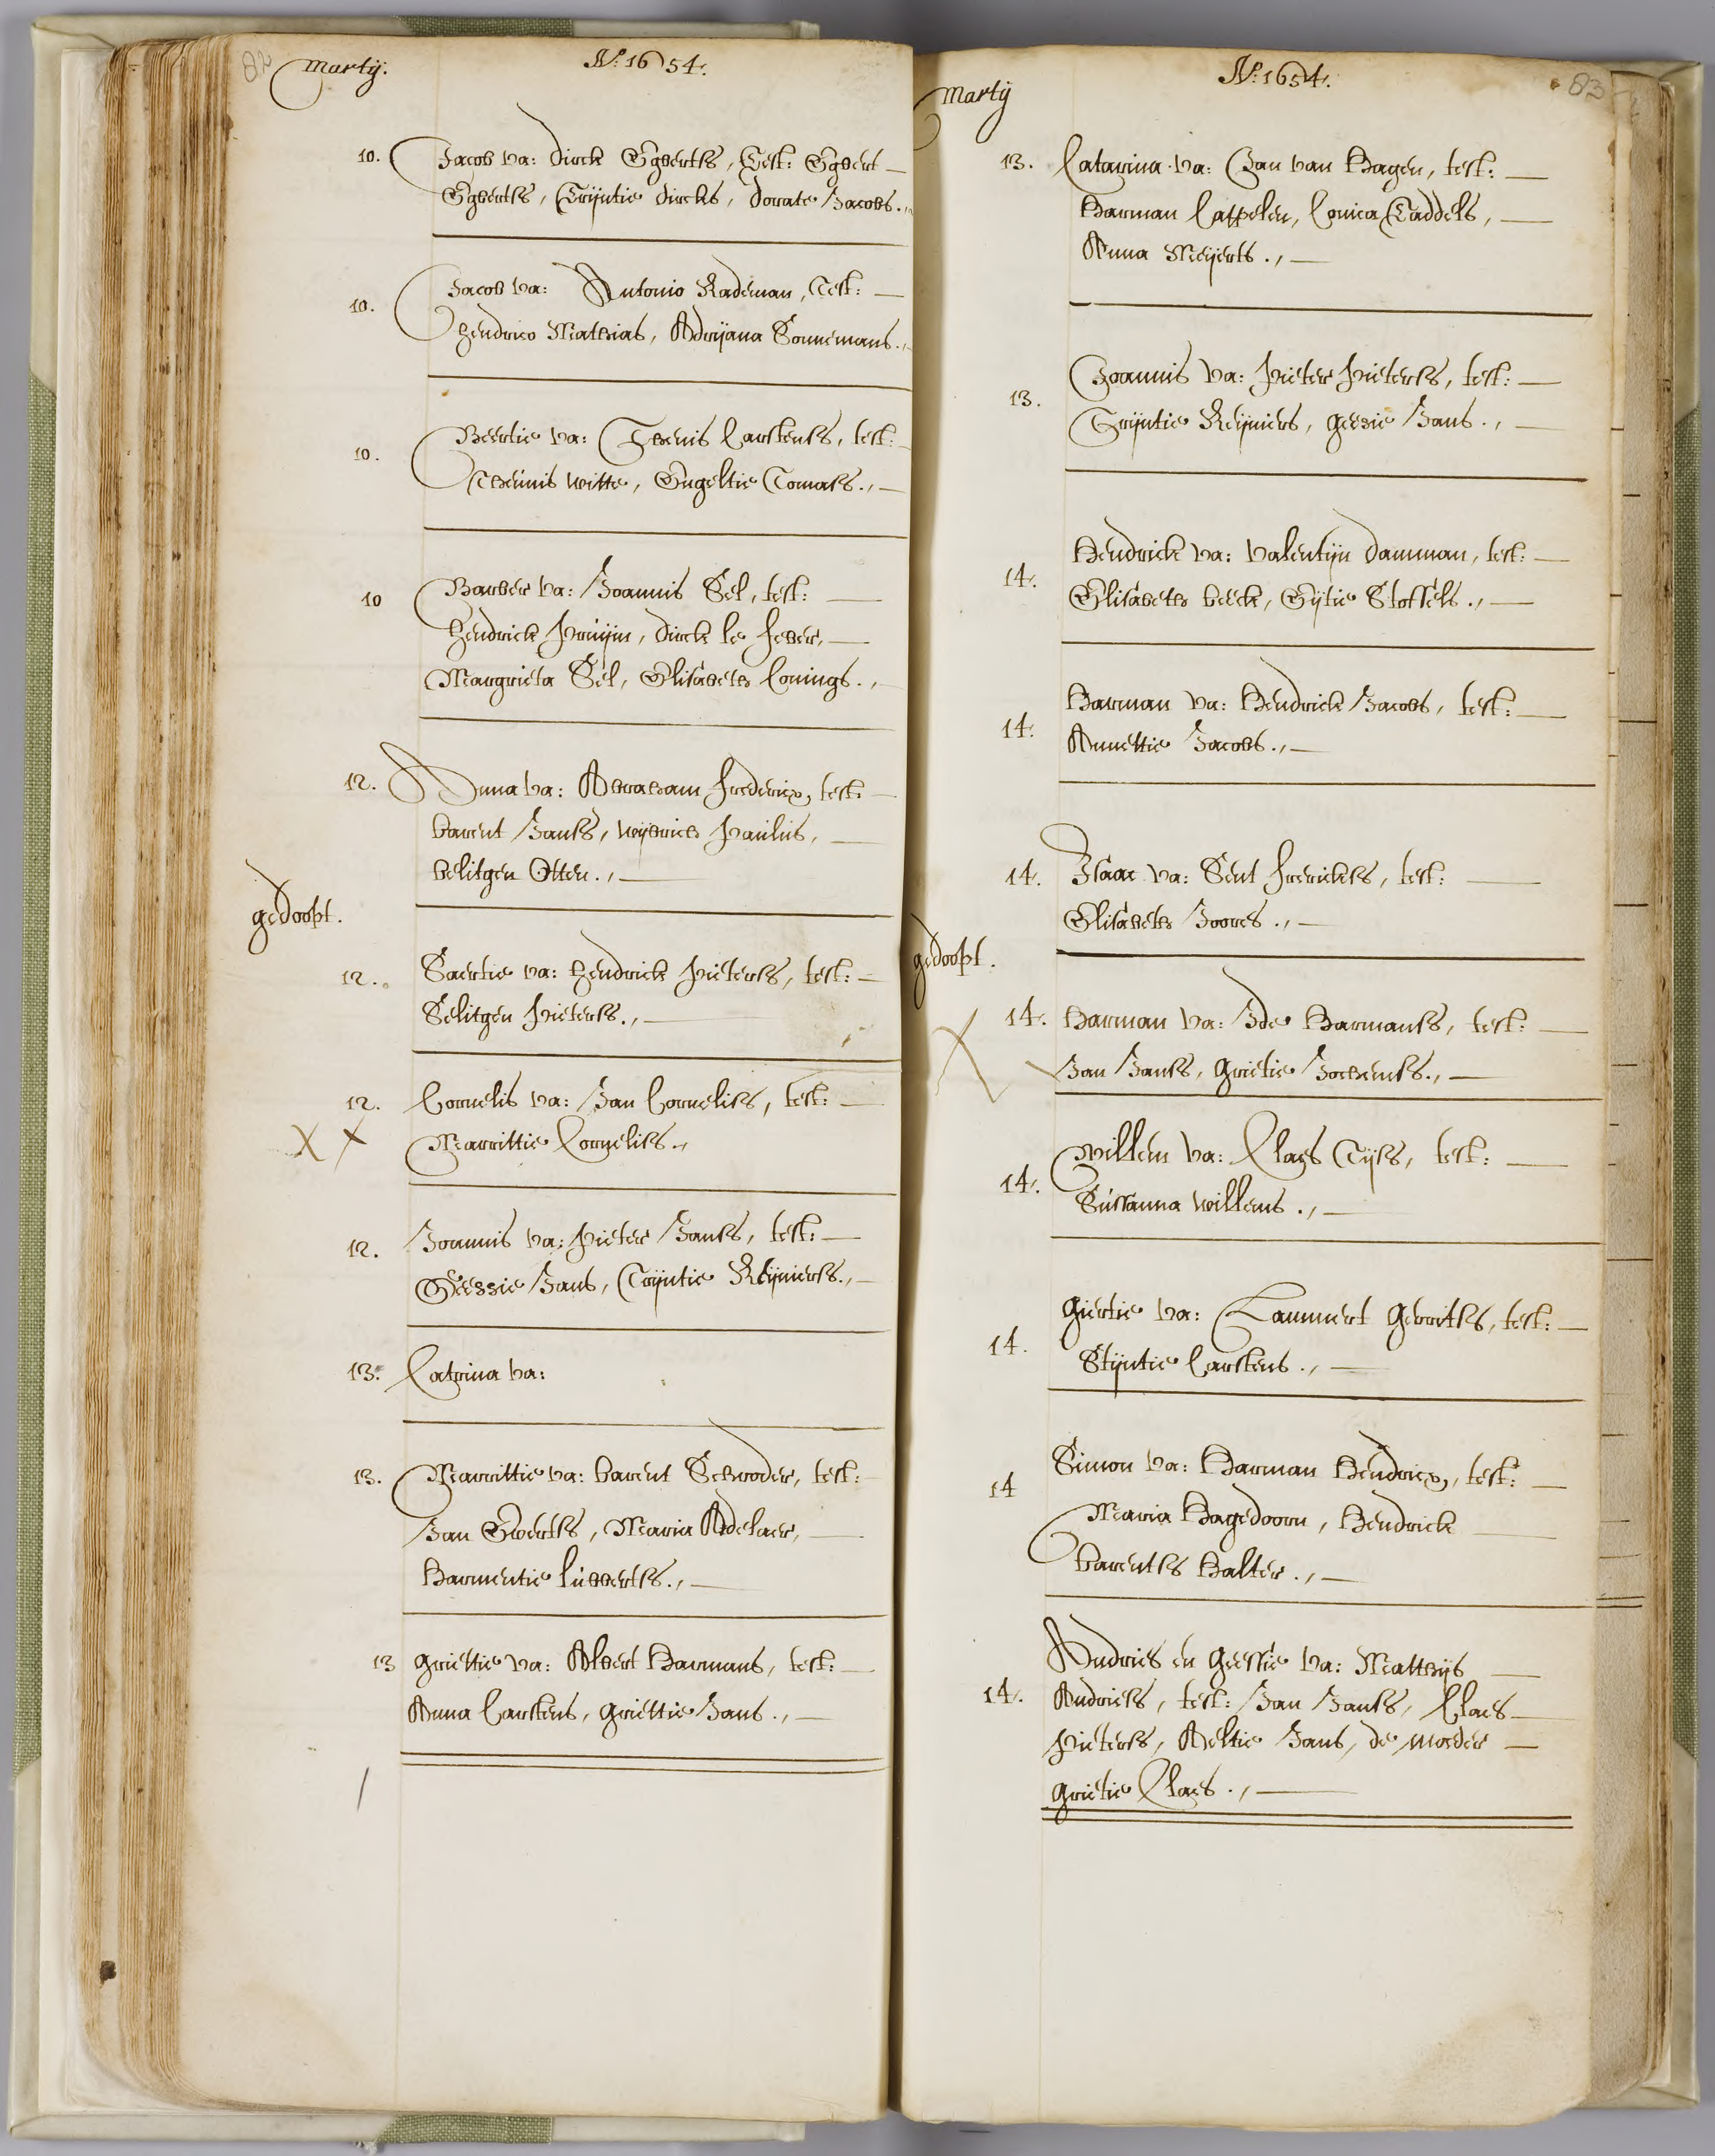 82
Martij.
Aº: 1654.
10. Jacob va: Dirck Egberts, Test: Egbert
Egberts, Trijntie dircks, Dorate Jacobs.
10. Jacob va: Antonio Rademan, Test:
Hendrico Mathias, Adrijana Sonnemans.
10. Beertie va: Theunis Carstens, test:
Theunis Witte, Engeltie Tomas.
10 Barber va: Joannis Sel, test:
Hendrick Pruijn, Dirck le feber,
Margrieta Sel, Elisabeth Conings.
12. Anna va: Abraham frederix, test:
Barent Jans, Wijbrich Paulus,
Belitgen Otten.
gedoopt.
12. Saertie va: Hendrick Pieters, test:
Selitgen Pieters.
12. Cornelis va: Jan Cornelis, test:
X X
Marrittie Cornelis.
12. Joannis va: Pieter Jans, test:
Geessie Jans, Trijntie Reijniers.
13. Catrina va:
13. Marrittie va: Barent Schroder, test:
Jan Everts, Maria Adelaer,
Harmentie Lubberts.
13 Griettie va: Albert Harmans, test:
Anna Carstens, Griettie Jans.
83
Martij
Aº: 1654.
13. Catarina va: Jan van Hagen, test:
Harman Cappelen, Lonica Taddels,
Anna Meijerts.
13. Joannis va: Pieter Pieters, test:
Trijntie Reijniers, Geesie Jans.
14. Hendrick va: Valentijn Damman, test:
Elisabeth Beeck, Gijtie Stoffels.
14. Harman va: Hendrick Jacobs, test:
Annettie Jacobs.
14. Isaac va: Sent frericks, test:
Elisabeth Joores.
gedoopt.
14. Harman va: Ide Harmans, test:
X
Jan Jans, Grietie Jochems.
14. Willem va: Claes Tijs, test:
Sussanna Willems.
14. Giertie va: Lammert Gerrits, test:
Stijntie Carstens.
14 Simon va: Harman Hendrix, test:
Maria Hagedoorn, Hendrick
Barents Halter.
14. Andries en Geessie va: Matthijs
Andries, test: Jan Jans, Claes
Pieters, Aeltie Jans, de Moeder
Grietie Claes.